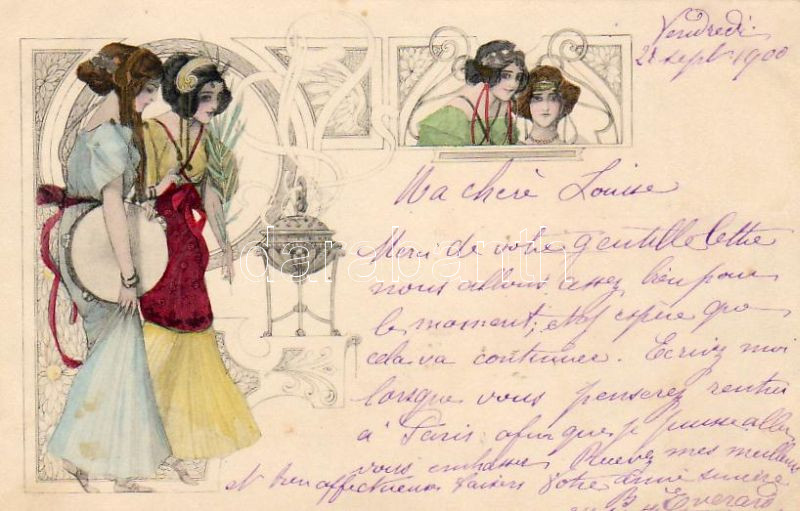 Vendredi
28 sept 1900
Ma chère Louise
Merci de votre gentille lettre
nous allons assez bien pour
le moment; espère que
cela va continuer. Ecrivez moi
lorsque vous penserez rentrer
à Paris afin que je puisse aller
vous embrasser Recevez mes meilleurs
et bien affectueux baisers Votre amie sincère
B. Everard
darabanth